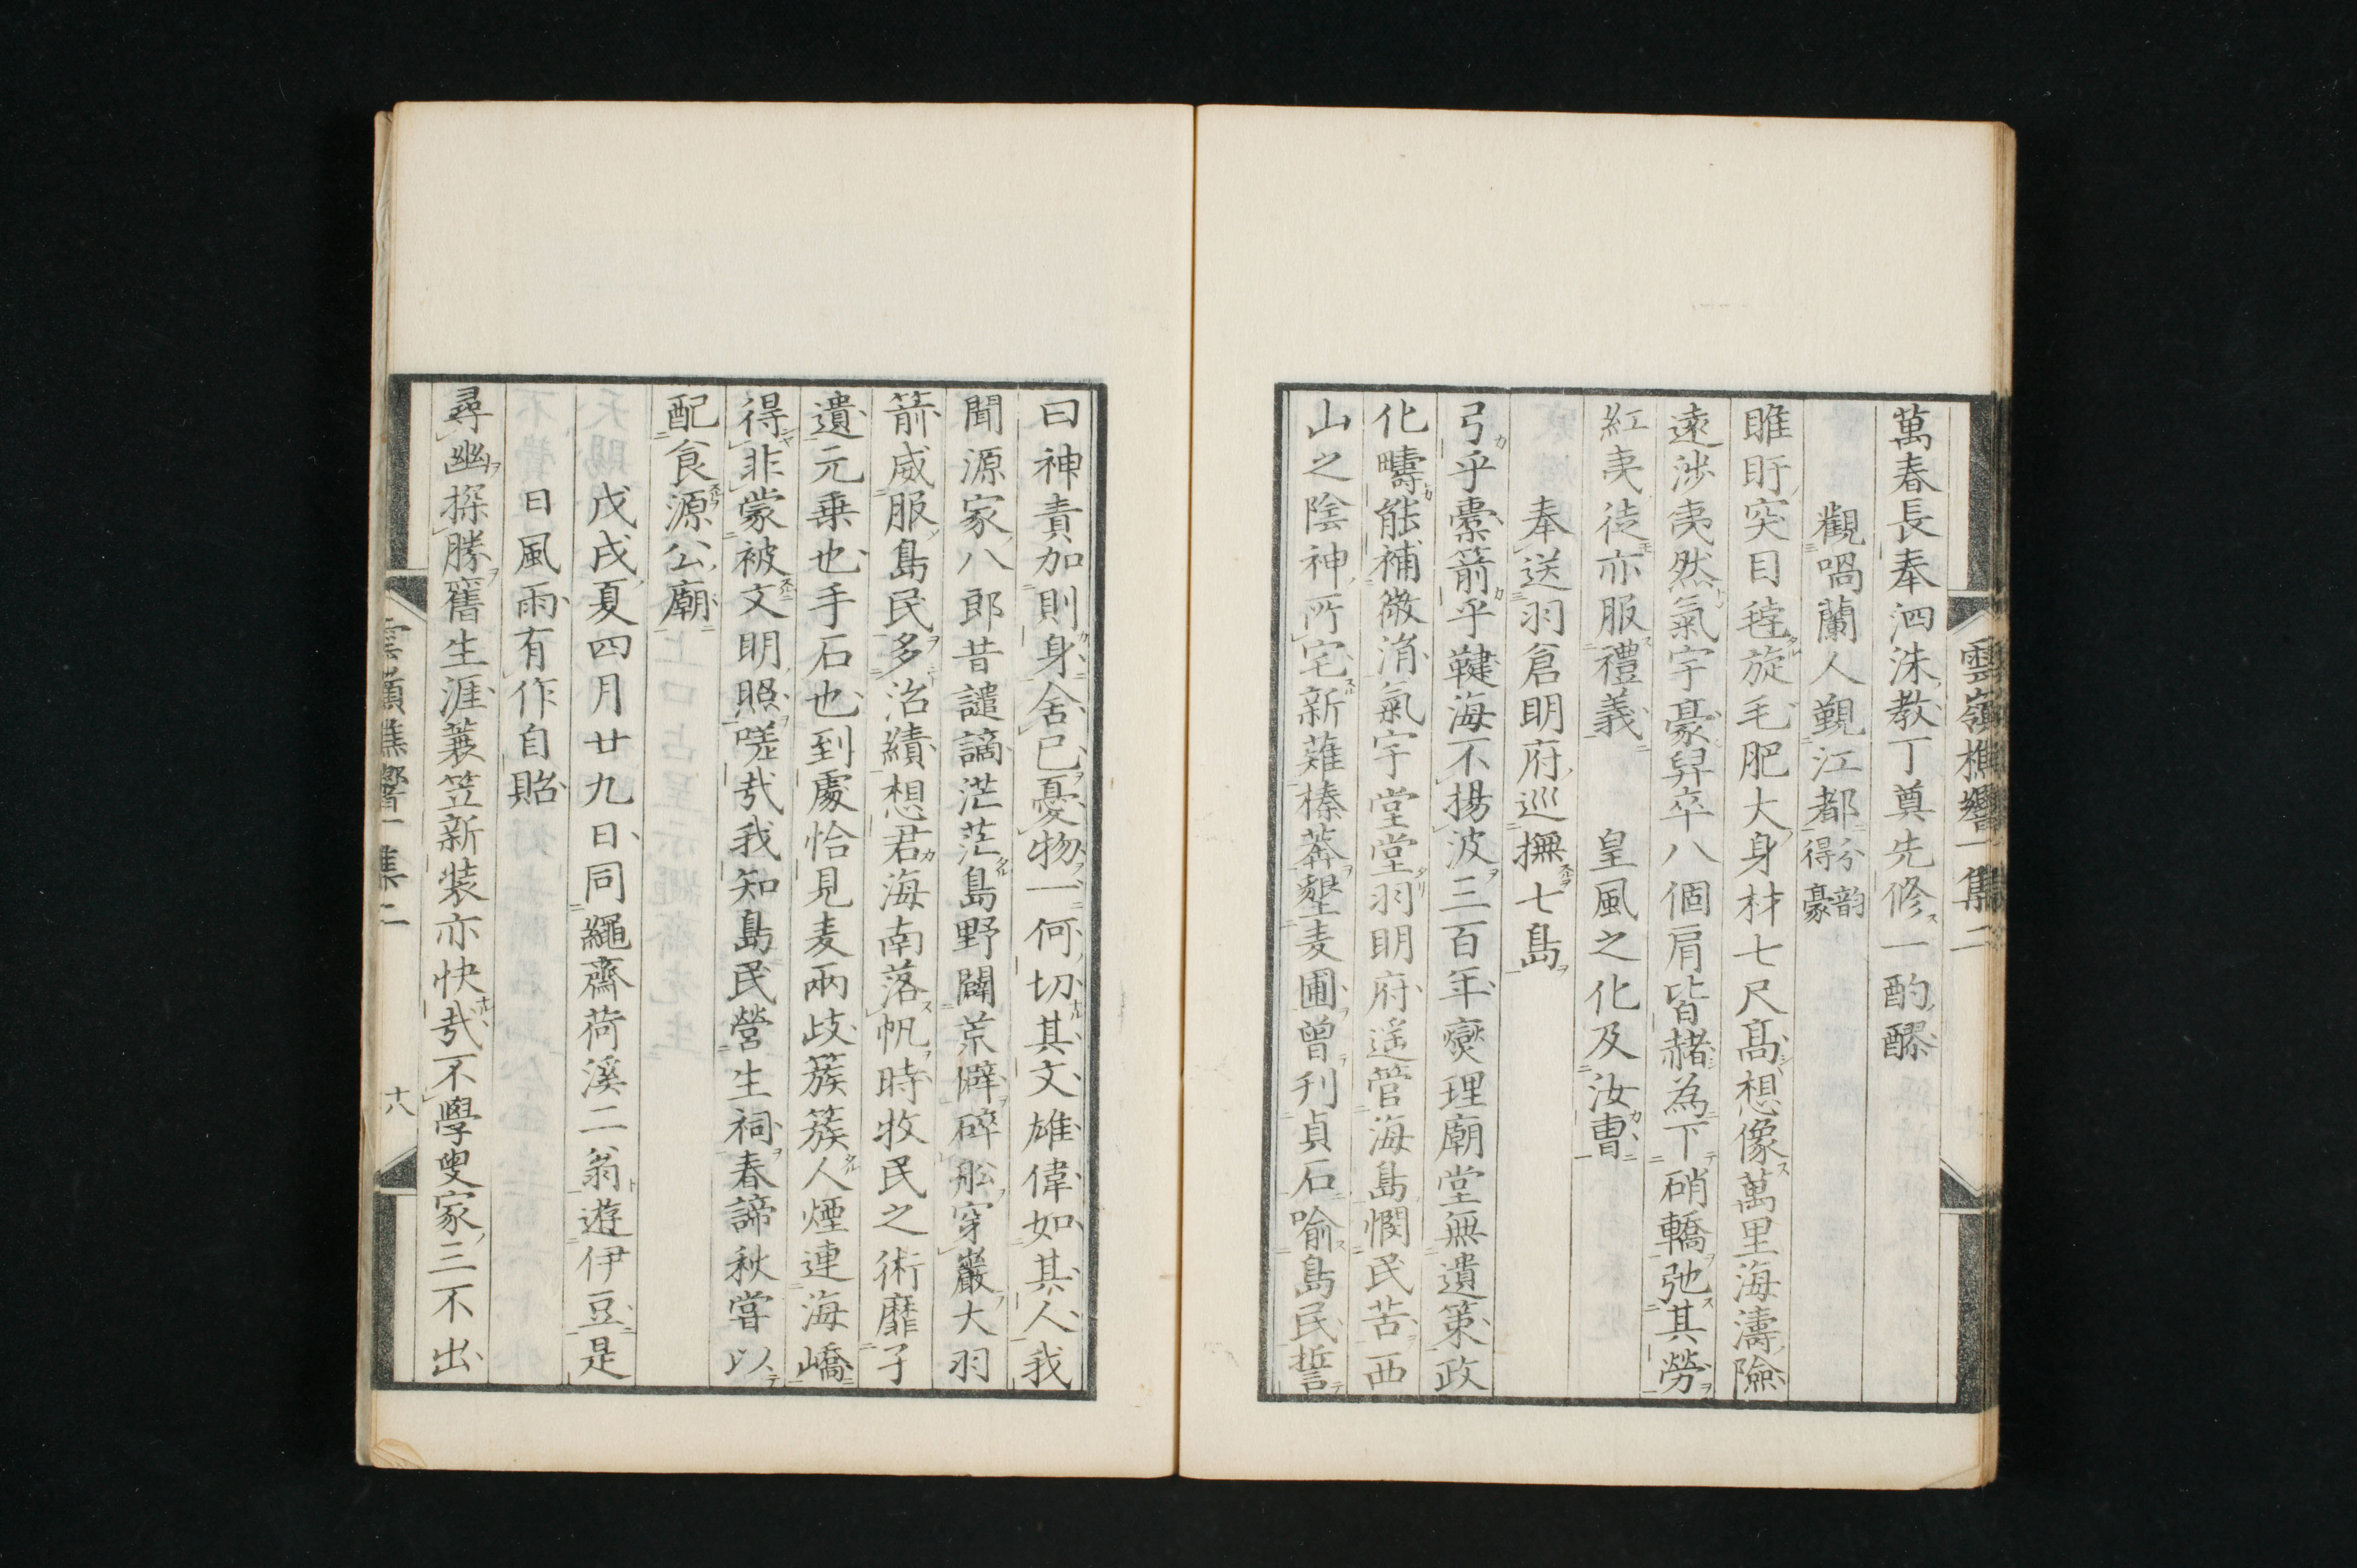 雲嶺樵響一集二
萬春長奉泗洙教丁奠先修一酌醪
觀喎蘭人覲江都分韵得豪
睢盱突目𣯶旋毛肥大身材七尺髙想像萬里海濤險
遠涉夷然氣宇豪舁卒八個肩皆赭為下硝轎弛其勞
紅夷徒亦服禮義　皇風之化及汝曹
奉送羽倉明府巡撫七島
弓乎櫜箭乎鞬海不揚波三百年爕理廟堂無遺策政
化疇能補微涓氣宇堂堂羽明府遥管海島憫民苦西
山之陰神所宅新薙榛莽墾麦圃曾刋貞石喻島民誓
曰神責加則身舍已憂物一何切其文雄偉如其人我
聞源家八郎昔譴謫茫茫島野闢荒僻碎舩穿巖大羽
箭威服島民多治績想君海南落帆時牧民之術靡孑
遺元乗也手石也到處恰見麦兩歧簇簇人煙連海嶠
得非蒙被文明照嗟㢤我知島民營生祠春諦秋嘗以
配食源公廟
戊戌夏四月廿九日同繩齋荷溪二翁遊伊豆是
日風雨有作自貽
尋幽探勝舊生涯蓑笠新装亦快㢤不學叟家三不出
雲嶺樵響一集二
十八